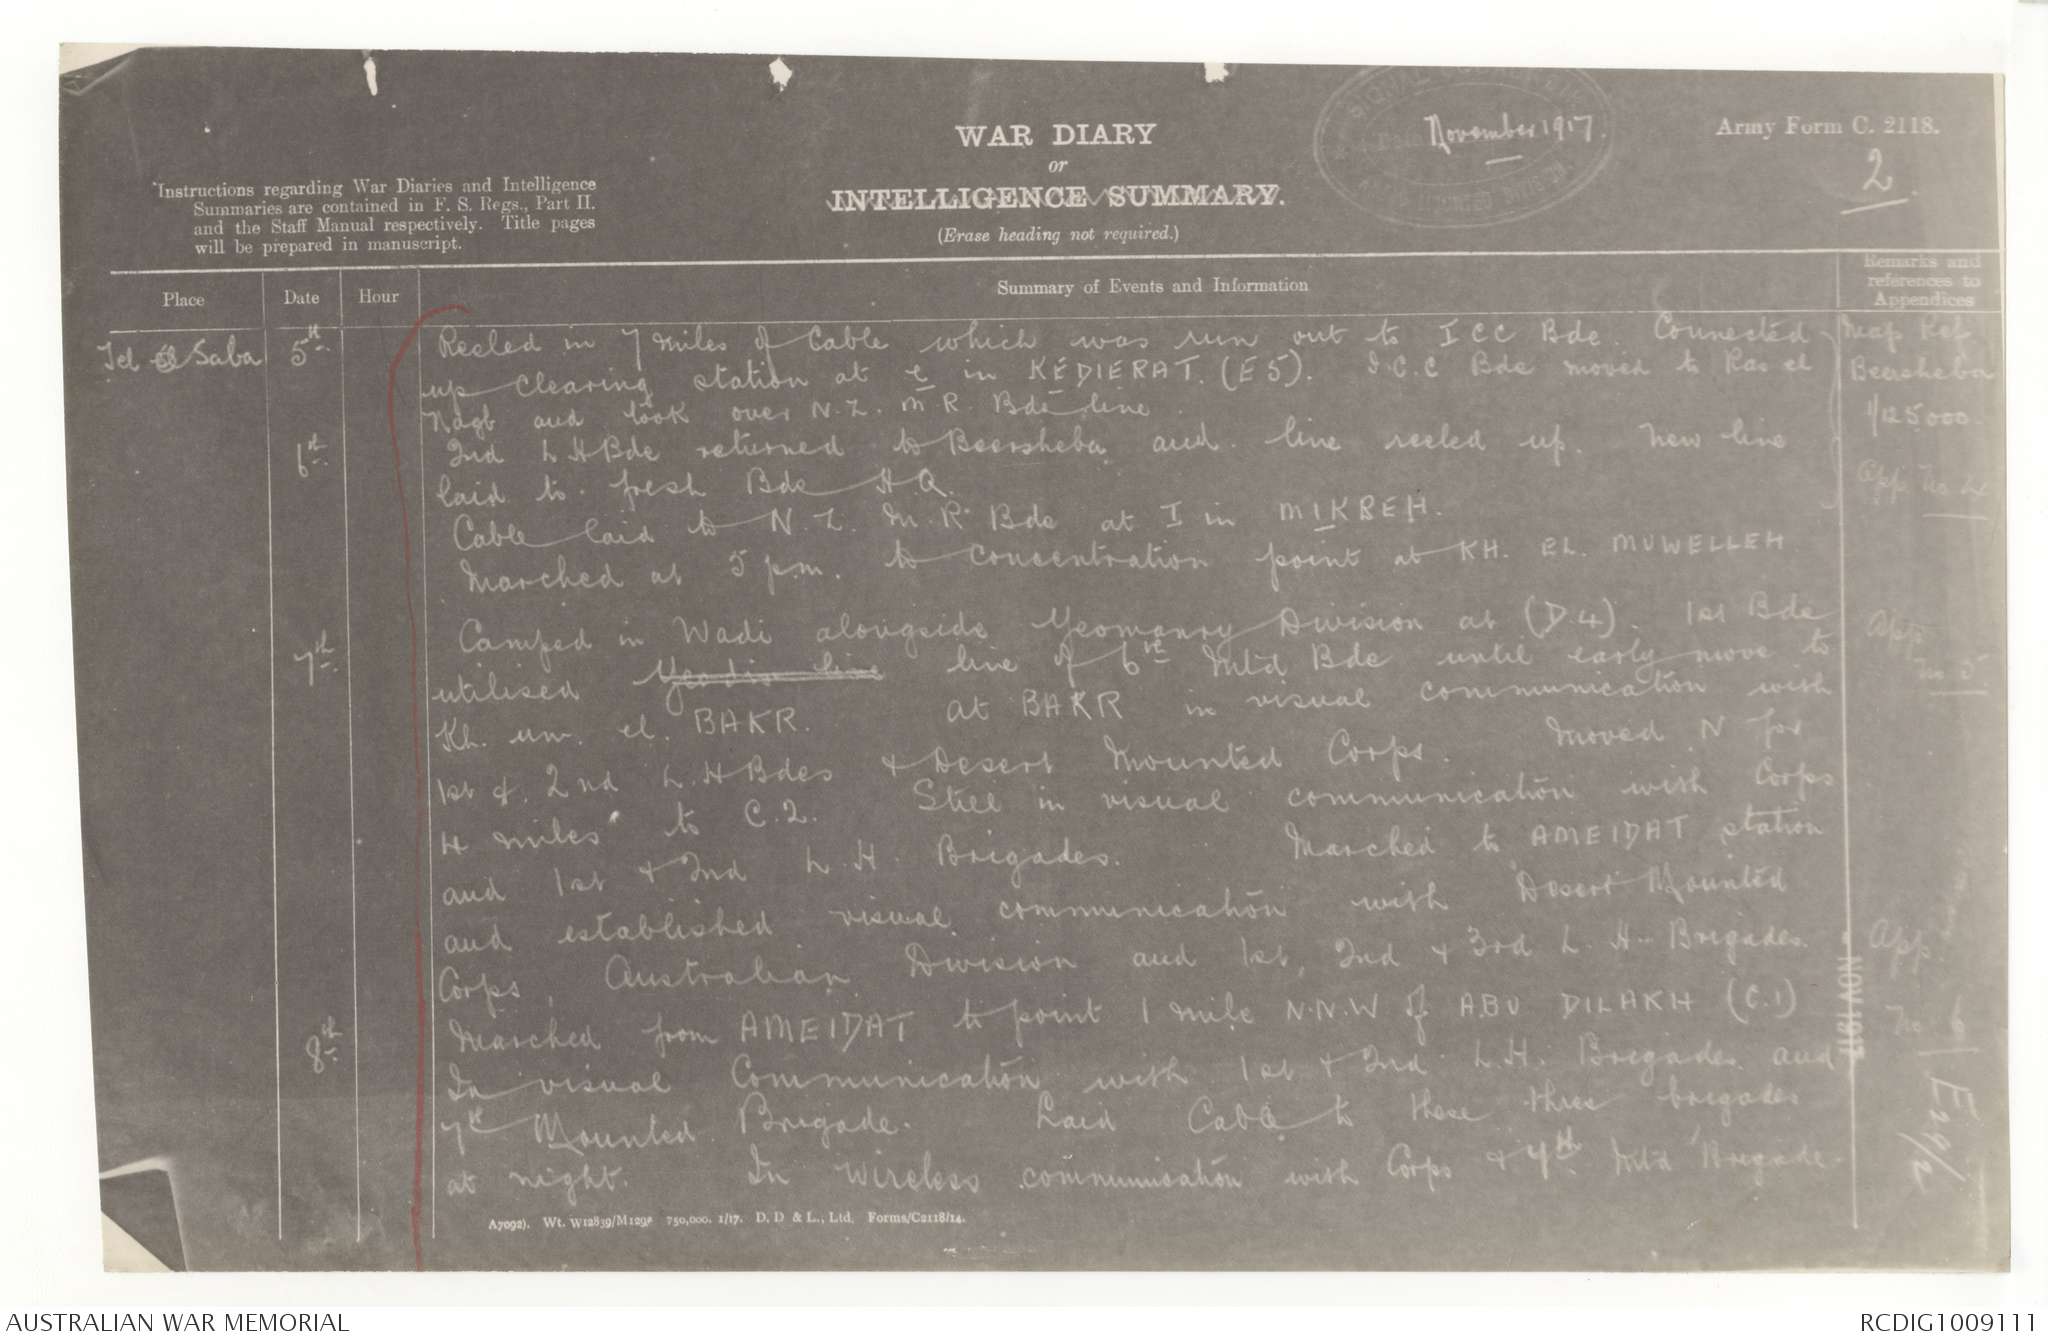 WAR DIARY
or
INTELLIGENCE SUMMARY.
(Erase heading not required.)
November 1917.
Army Form C. 2118.
2.
Instructions regarding War Diaries and Intelligence
Summaries are contained in F. S. Regs., Part II.
and the Staff Manual respectively. Title pages
will be prepared in manuscript.
Place
Date
Hour
Summary of Events and Information
Remarks and
references to
Appendices
Tel el Saba
5th
Reeled in 7 miles of Cable which was run out to I C C Bde. Connected
up clearing station at e in KEDIERAT. (E5). I.C.C Bde moved to Ras el
Nagb and took over N.Z. M R. Bde line.
Map Ref
Beersheba
1/125000.
6th
2nd L H Bde returned to Beersheba and line reeled up. New line
laid to fresh Bde H.Q.
App No 4
Cable laid to N.Z. M.R. Bde at I in MIKREH.
Marched at 5 p.m. to concentration point at KH. EL. MUWELLEH
7th
Camped in Wadi alongside Yeomanry Division at (D.4). 1st Bde
utilised Yeodiv line line of 6th Mtd Bde until early move to
Kh. um. el. BAKR. At BAKR in visual communication with
1st & 2nd L.H Bdes & Desert Mounted Corps. Moved N for
4 miles to C.2. Still in visual communication with Corps
and 1st & 2nd L.H. Brigades. Marched to AMEIDAT station
and established visual communication with Desert Mounted
Corps, Australian Division and 1st, 2nd & 3rd L.H. Brigades.
App
No 5
8th
Marched from AMEIDAT to point 1 mile N.N.W of ABU DILAKH (C.1)
In visual Communication with 1st & 2nd L.H. Brigades and
7th Mounted Brigade. Laid Cable to these three brigades
at night. In wireless communication with Corps & 7th Mtd Brigade.
App.
No 6
NOV 1917
A7092). Wt. W12839/M1297 750,000. 1/17. D. D & L., Ltd. Forms/C2118/14.
AUSTRALIAN WAR MEMORIAL
RCDIG1009111